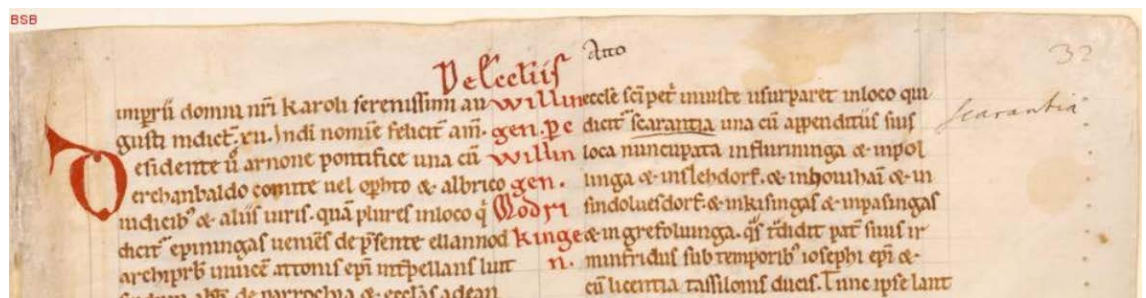 BSB
Atto
32
imprū domni nr̄i karoli serenissimi au
gusti indict̄. xii. Indī nomīe felicit̄ am̄.
Desidente ū arnone pontifice una cū
erchanbaldo comite uel oph̄to & albrico
iudicib; & aliis uiris. quā plures inloco q̄
dicit̄ epiningas ueniēs de p̄sente ellannod
archiprb̄ inuicē attonis epī int̄pellans luit
abb̄. de parrochia & ecclās adean
De Ecclīis
willin
gen. pe
willin
gen.
Modri
kinge
n.
ecclē sc̄i pet̄ iniuste usurparet inloco qui
dicit̄ scarantia una cū appenditiis suis
loca nuncupata influrininga & inpol
linga & inslehdorf. & inhouihaī & in
sindoluesdorf. & inkisingas & inpasingas
& in grefoluinga. qs̄ r̄didit pat̄ suus ir
minfridus sub temporib; iosephi epī &
cū licentia tassilonis ducis. Tunc ipse lant
scarantia